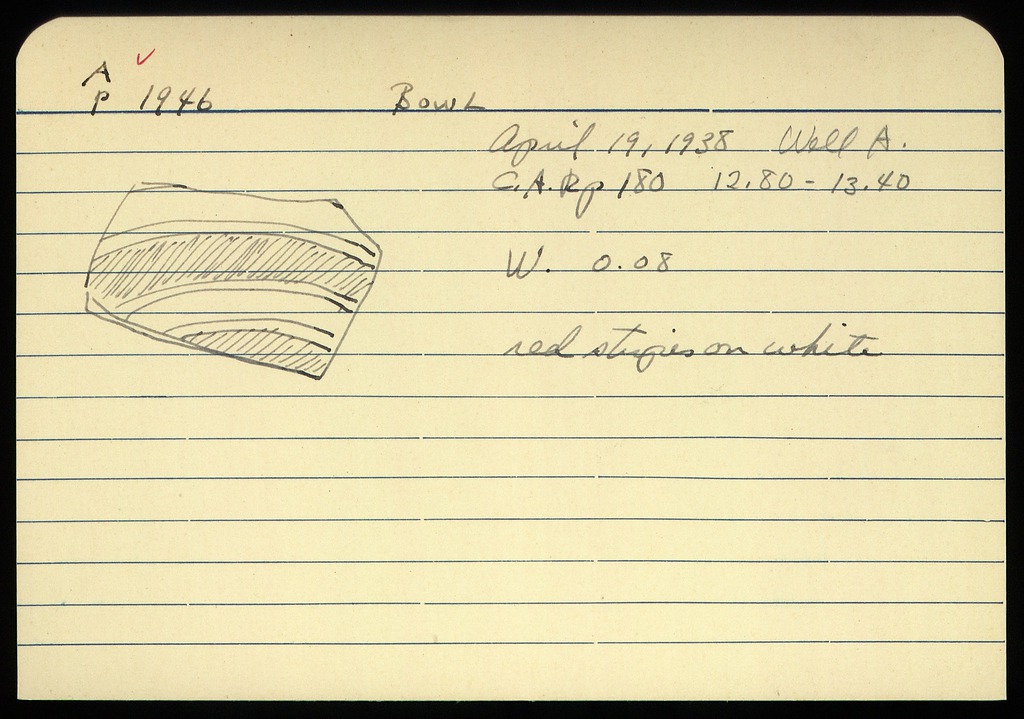 A
P 1946 Bowl
April 19, 1938 Well A.
C.A. Rp 180 12.80 - 13.40
W. 0.08
red stripes on white